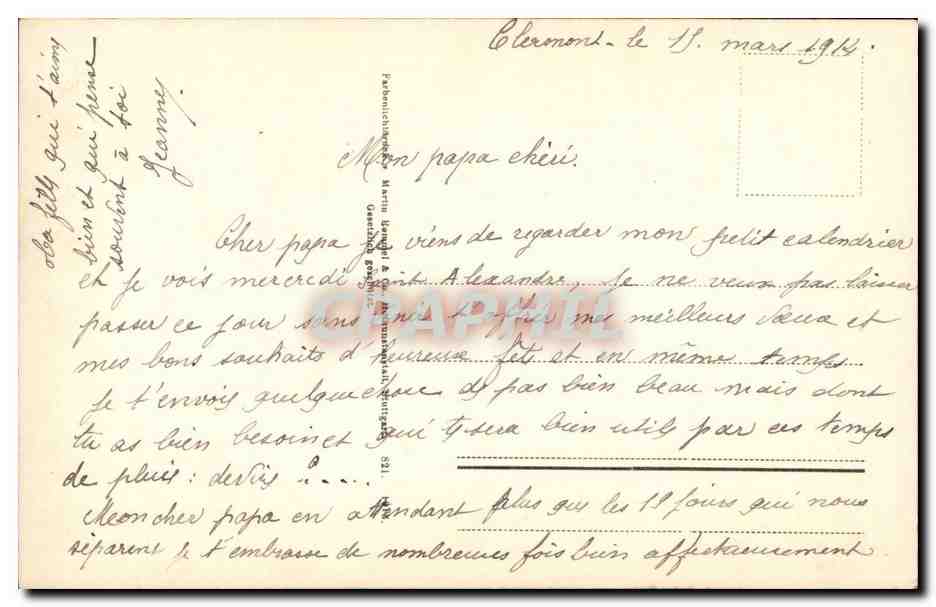 Clermont - le 15. mars 1914.
Mon papa chéri.
Cher papa je viens de regarder mon petit calendrier
et je vois mercredi saint Alexandre, je ne veux pas laisser
passer ce jour sans venir t'offrir mes meilleurs vœux et
mes bons souhaits d'heureuse fête et en même temps
je t'envois quelque chose de pas bien beau mais dont
tu as bien besoin et qui te sera bien utile par ces temps
de pluie : devine ? .....
Mon cher papa en attendant plus que les 19 jours qui nous
séparent je t'embrasse de nombreuses fois bien affectueusement
ta fille qui t'aime
bien et qui pense
souvent à toi
Jeanne.
Martin Rommel & Co. Hofkunstanstalt, Stuttgart 821.
Gesetzlich geschützt.
CPAPHIL